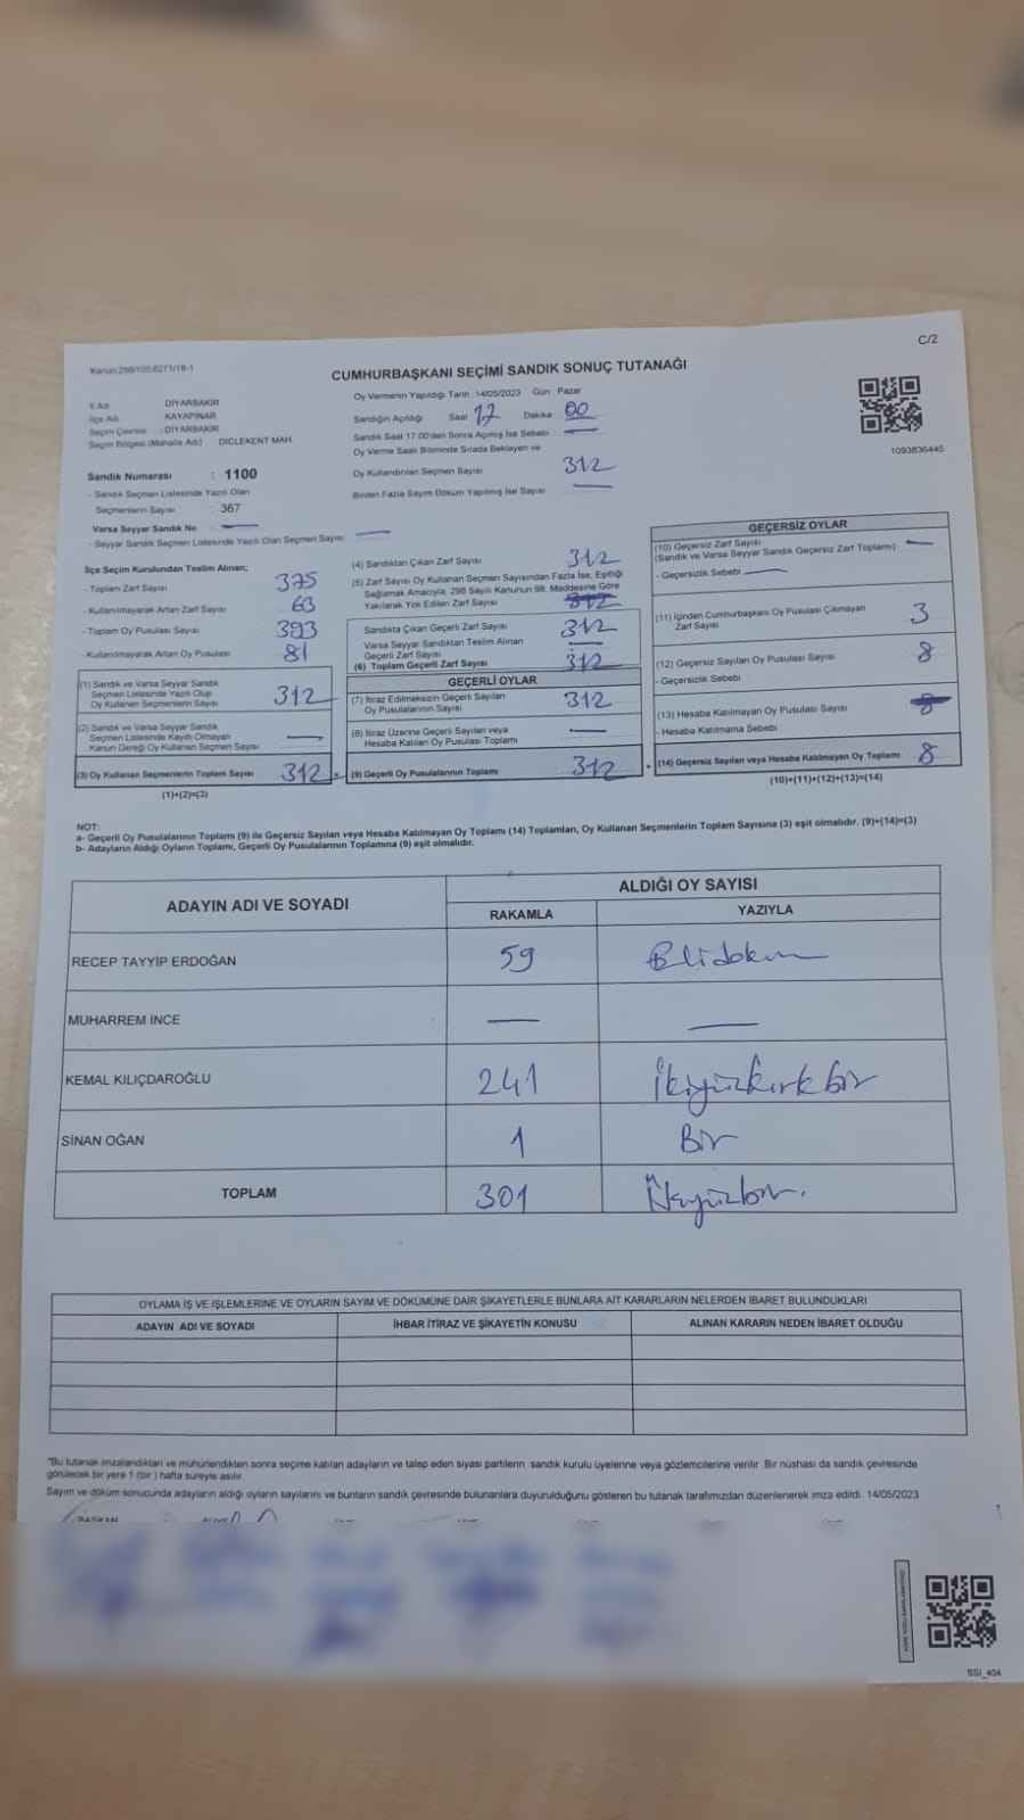 C/2
Kanun:298/105,6271/18-1
CUMHURBAŞKANI SEÇİMİ SANDIK SONUÇ TUTANAĞI
İl Adı DİYARBAKIR
İlçe Adı KAYAPINAR
Seçim Çevresi : DİYARBAKIR
Seçim Bölgesi (Mahalle Adı) DİCLEKENT MAH.
Oy Vermenin Yapıldığı Tarih :14/05/2023 Gün : Pazar
Sandığın Açıldığı Saat 17 Dakika 00
Sandık Saat 17.00'den Sonra Açılmış İse Sebebi : —
Oy Verme Saati Bitiminde Sırada Bekleyen ve
Oy Kullandırılan Seçmen Sayısı 312
Birden Fazla Sayım Döküm Yapılmış İse Sayısı —
1093836445
Sandık Numarası : 1100
- Sandık Seçmen Listesinde Yazılı Olan
Seçmenlerin Sayısı : 367
Varsa Seyyar Sandık No —
- Seyyar Sandık Seçmen Listesinde Yazılı Olan Seçmen Sayısı —
İlçe Seçim Kurulundan Teslim Alınan;
- Toplam Zarf Sayısı 375
- Kullanılmayarak Artan Zarf Sayısı 63
- Toplam Oy Pusulası Sayısı 393
- Kullanılmayarak Artan Oy Pusulası 81
(1) Sandık ve Varsa Seyyar Sandık
Seçmen Listesinde Yazılı Olup
Oy Kullanan Seçmenlerin Sayısı 312
(2) Sandık ve Varsa Seyyar Sandık
Seçmen Listesinde Kayıtlı Olmayan
Kanun Gereği Oy Kullanan Seçmen Sayısı —
(3) Oy Kullanan Seçmenlerin Toplam Sayısı 312
(1)+(2)=(3)
(4) Sandıktan Çıkan Zarf Sayısı 312
(5) Zarf Sayısı Oy Kullanan Seçmen Sayısından Fazla İse, Eşitliği
Sağlamak Amacıyla, 298 Sayılı Kanunun 98. Maddesine Göre
Yakılarak Yok Edilen Zarf Sayısı
Sandıkta Çıkan Geçerli Zarf Sayısı 312
Varsa Seyyar Sandıktan Teslim Alınan
Geçerli Zarf Sayısı —
(6) Toplam Geçerli Zarf Sayısı 312
GEÇERLİ OYLAR
(7) İtiraz Edilmeksizin Geçerli Sayılan
Oy Pusulalarının Sayısı 312
(8) İtiraz Üzerine Geçerli Sayılan veya
Hesaba Katılan Oy Pusulası Toplamı —
(9) Geçerli Oy Pusulalarının Toplamı 312
GEÇERSİZ OYLAR
(10) Geçersiz Zarf Sayısı
(Sandık ve Varsa Seyyar Sandık Geçersiz Zarf Toplamı) —
- Geçersizlik Sebebi —
(11) İçinden Cumhurbaşkanı Oy Pusulası Çıkmayan
Zarf Sayısı 3
(12) Geçersiz Sayılan Oy Pusulası Sayısı 8
- Geçersizlik Sebebi
(13) Hesaba Katılmayan Oy Pusulası Sayısı
- Hesaba Katılmama Sebebi
(14) Geçersiz Sayılan veya Hesaba Katılmayan Oy Toplamı 8
(10)+(11)+(12)+(13)=(14)
NOT:
a- Geçerli Oy Pusulalarının Toplamı (9) ile Geçersiz Sayılan veya Hesaba Katılmayan Oy Toplamı (14) Toplamları, Oy Kullanan Seçmenlerin Toplam Sayısına (3) eşit olmalıdır. (9)+(14)=(3)
b- Adayların Aldığı Oyların Toplamı, Geçerli Oy Pusulalarının Toplamına (9) eşit olmalıdır.
ADAYIN ADI VE SOYADI
ALDIĞI OY SAYISI
RAKAMLA YAZIYLA
RECEP TAYYİP ERDOĞAN 59 Ellidokuz
MUHARREM İNCE — —
KEMAL KILIÇDAROĞLU 241 İkiyüzkırkbir
SİNAN OĞAN 1 Bir
TOPLAM 301
OYLAMA İŞ VE İŞLEMLERİNE VE OYLARIN SAYIM VE DÖKÜMÜNE DAİR ŞİKAYETLERLE BUNLARA AİT KARARLARIN NELERDEN İBARET BULUNDUKLARI
ADAYIN ADI VE SOYADI İHBAR İTİRAZ VE ŞİKAYETİN KONUSU ALINAN KARARIN NEDEN İBARET OLDUĞU
"Bu tutanak imzalandıktan ve mühürlendikten sonra seçime katılan adayların ve talep eden siyasi partilerin sandık kurulu üyelerine veya gözlemcilerine verilir. Bir nüshası da sandık çevresinde
görülecek bir yere 1 (bir ) hafta süreyle asılır.
Sayım ve döküm sonucunda adayların aldığı oyların sayılarını ve bunların sandık çevresinde bulunanlara duyurulduğunu gösteren bu tutanak tarafımızdan düzenlenerek imza edildi. 14/05/2023
BAŞKAN
SSI_404